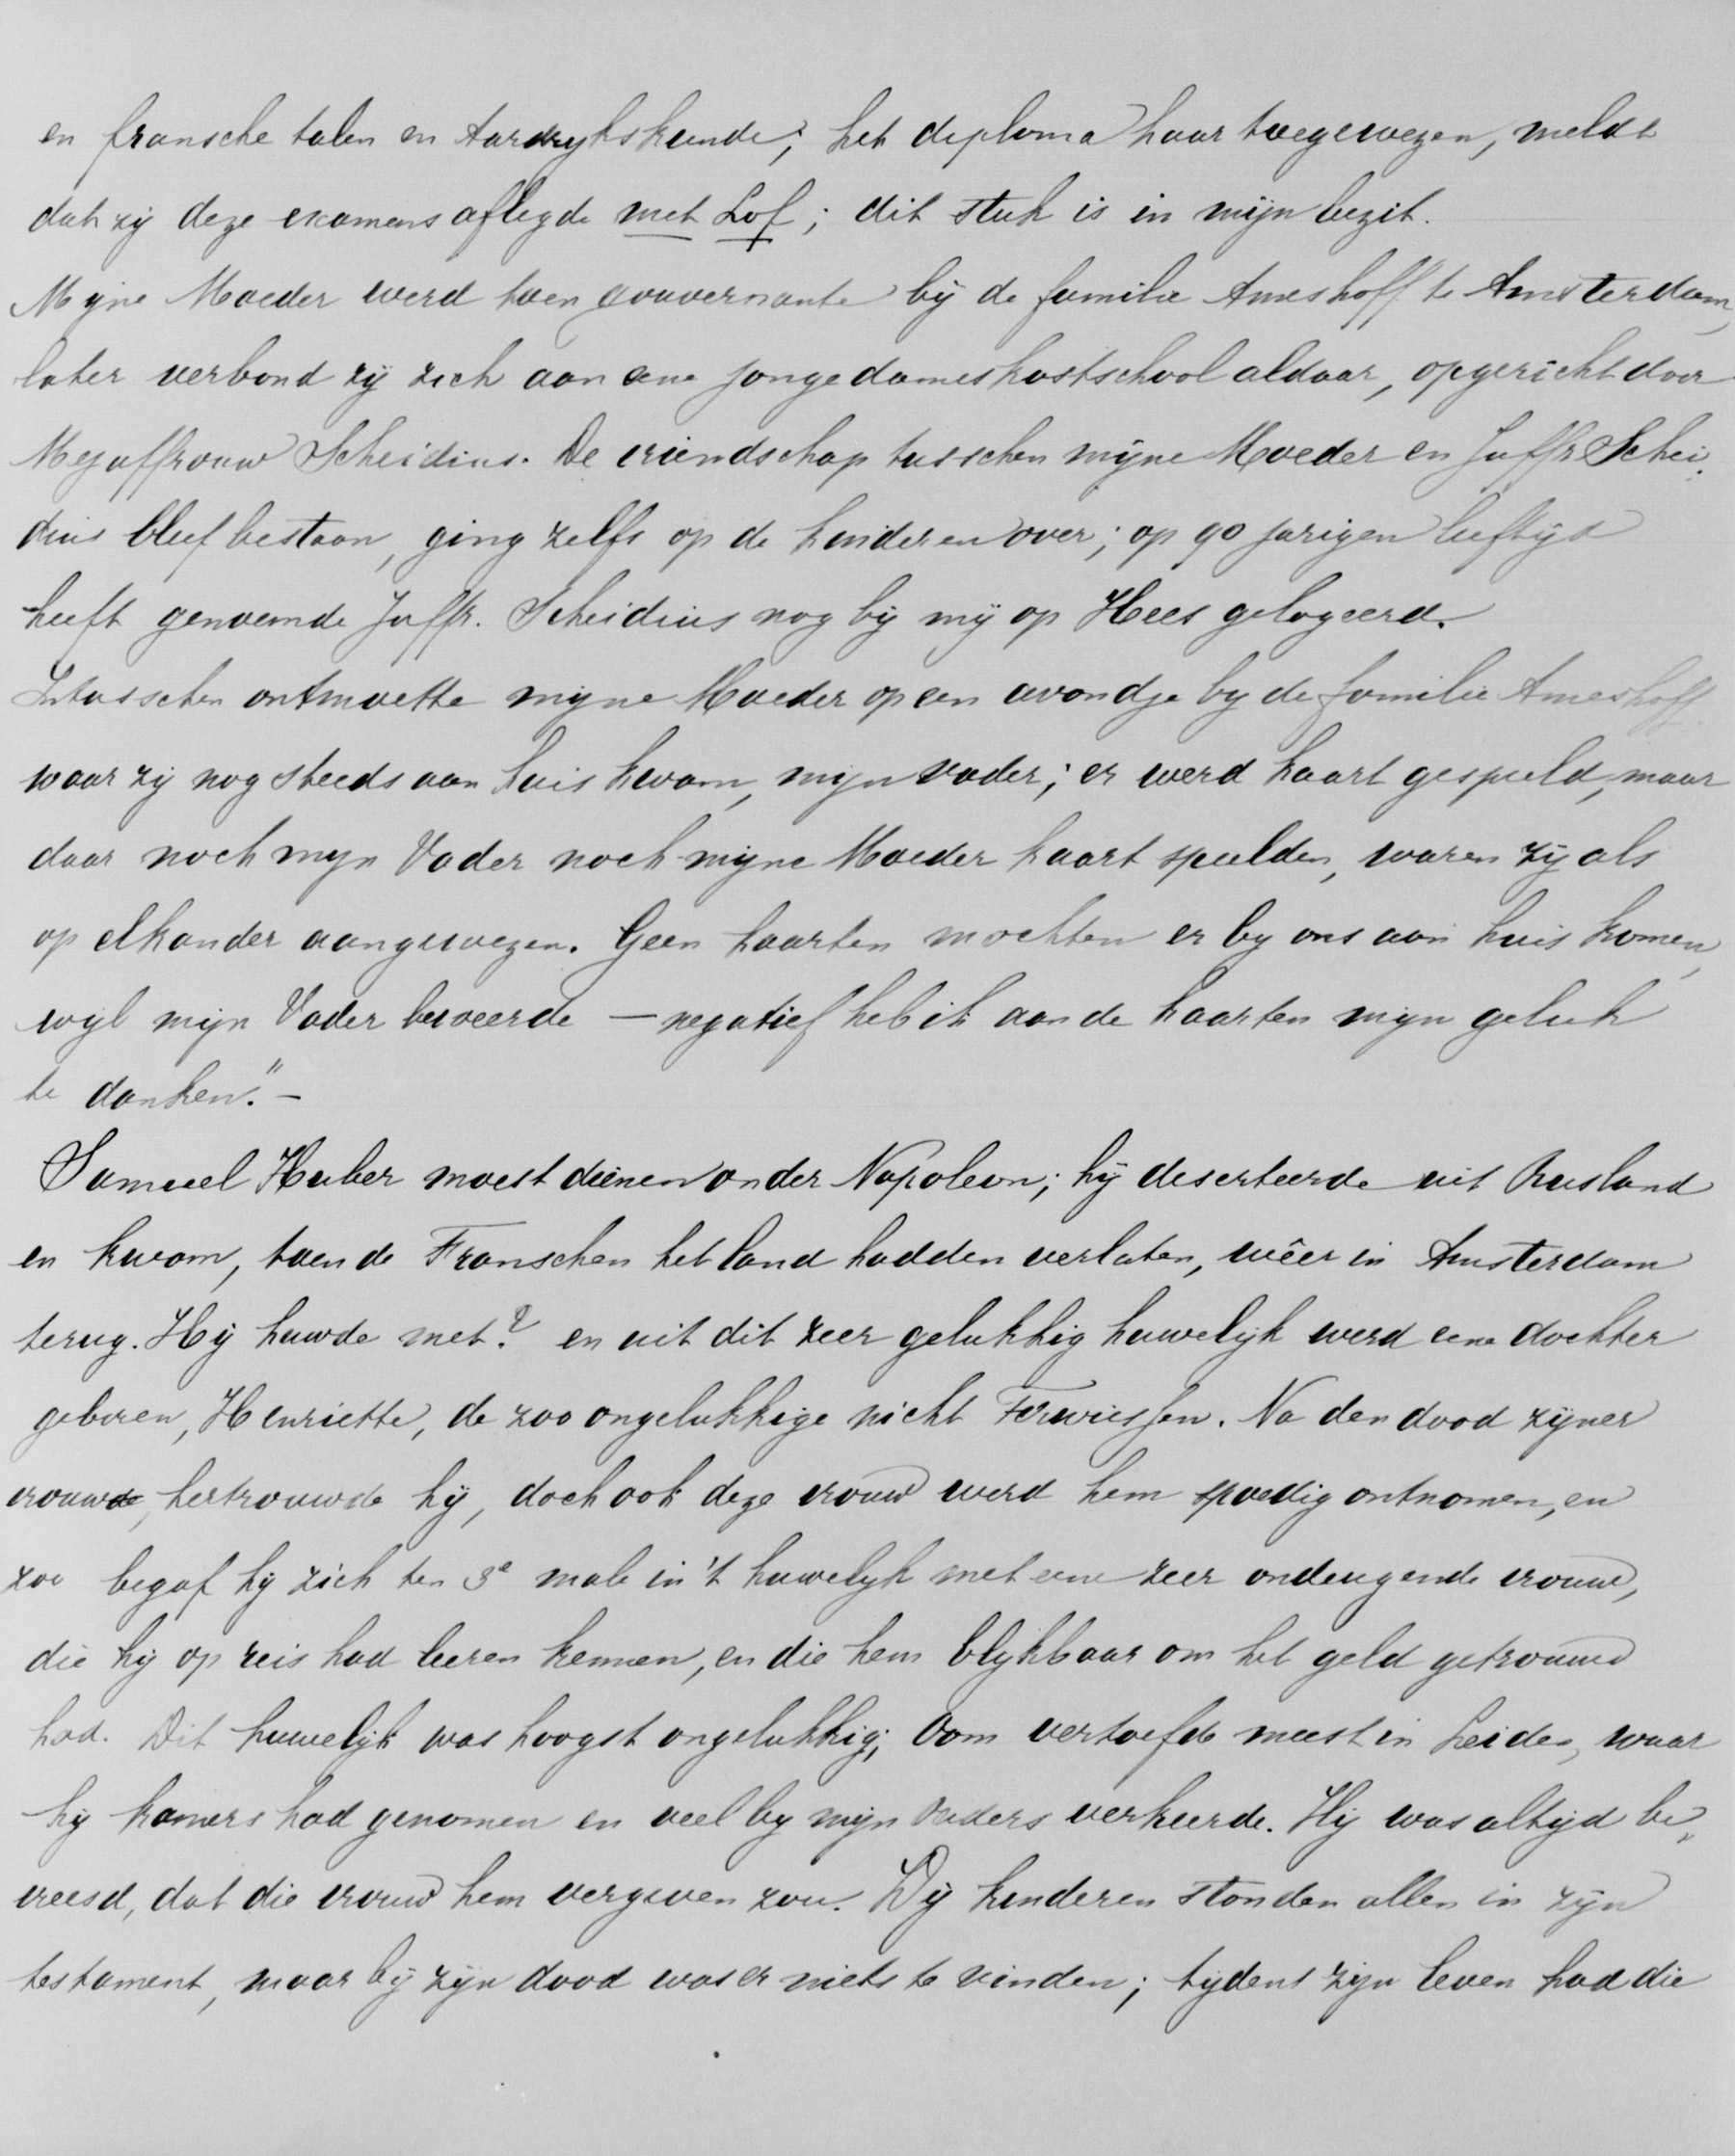 en fransche talen en Aardrykskunde; het diploma haar toegewezen, meldt
dat zy deze examens aflegde met Lof; dit stuk is in mijn bezit.
Myne Moeder werd toen gouvernante bij de familie Ameshoff te Amsterdam,
later verbond zij zich aan eene jongedameskostschool aldaar, opgericht door
Mejuffrouw Scheidius. De vriendschap tusschen mijne Moeder en Juffr Schei„
dius bleef bestaan, ging zelfs op de kinderen over; op 90 jarigen leeftijd
heeft genoemde Juffr. Scheidius nog bij mij op Hees gelogeerd.
Intusschen ontmoette mijne Moeder op een avondje by de familie Ameshoff
waar zij nog steeds aan huis kwam, mijn vader; er werd kaart gespeeld, maar
daar noch myn Vader noch mijne Moeder kaart speelden, waren zij als
op elkander aangewezen. Geen kaarten mochten er by ons aan huis komen,
wijl mijn Vader beweerde – negatief heb ik aan de kaarten mijn geluk
te danken." –
Samuel Huber moest dienen onder Napoleon; hij deserteerde uit Rusland
en kwam, toen de Franschen het land hadden verlaten, wêer in Amsterdam
terug. Hij huwde met ? en uit dit zeer gelukkig huwelijk werd eene dochter
geboren, Henriette, de zoo ongelukkige nicht Ferwiesjen. Na den dood zijner
vrouwde, hertrouwde hij, doch ook deze vrouw werd hem spoedig ontnomen, en
zoo begaf hij zich ten 3e male in 't huwelyk met eene zeer ondeugende vrouw,
die hij op reis had leeren kennen, en die hem blijkbaar om het geld getrouwd
had. Dit huwelijk was hoogst ongelukkig; Oom vertoefde meest in Leiden, waar
hij kamers had genomen en veel by mijn Ouders verkeerde. Hij was altijd be„
vreesd, dat die vrouw hem vergeven zou. Wij kinderen stonden allen in zijn
testament, maar bij zijn dood was er niets te vinden; tijdens zijn leven had die